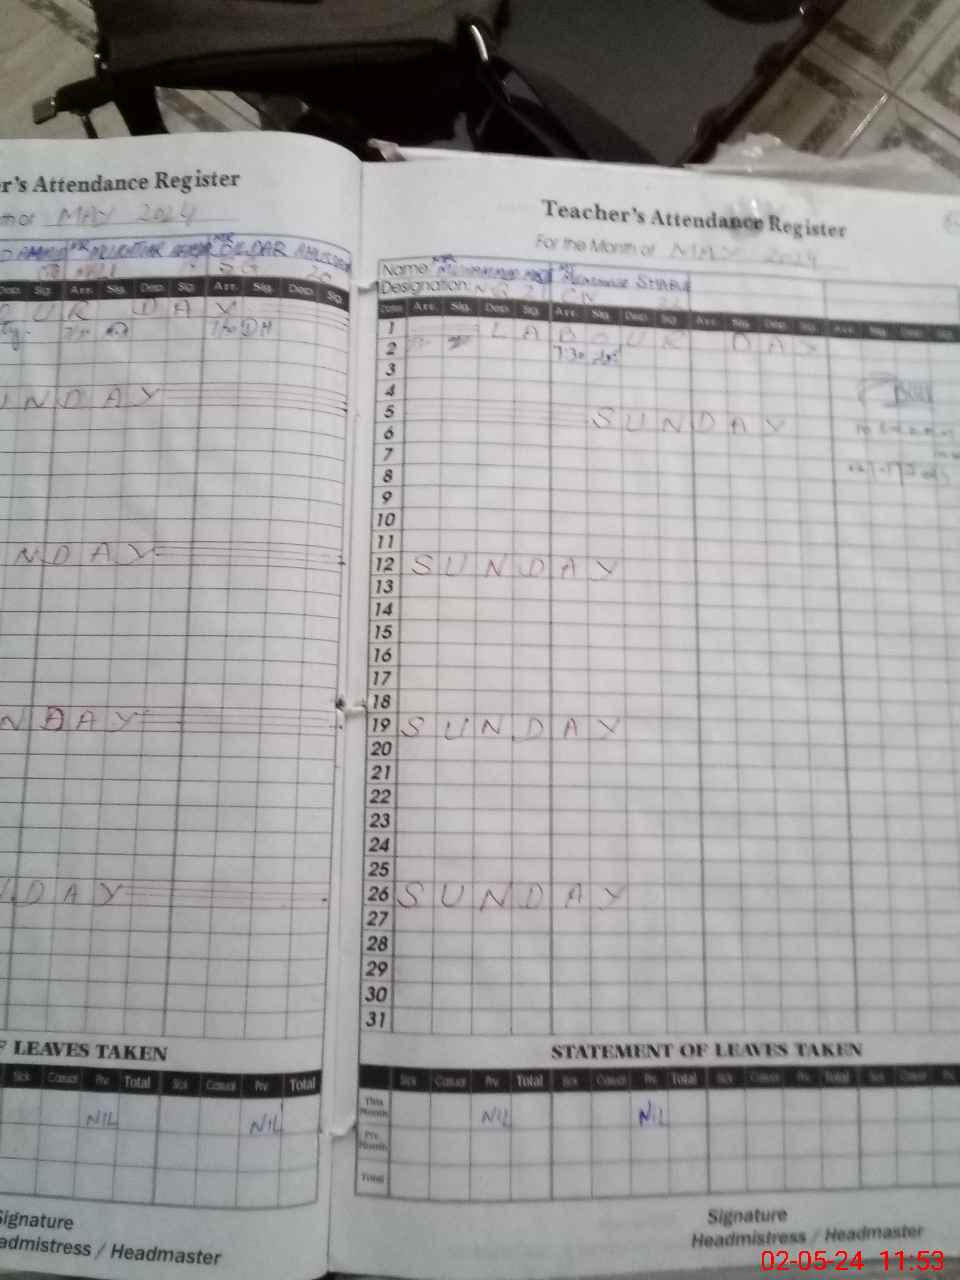 r's Attendance Register
MAY 2024
DILDAR
Dep. Sig. Arr. Sig. Dep. Sig. Arr. Sig. Dep. Sig.
U R D A Y
N D A Y
N D A Y
N D A Y
D A Y
LEAVES TAKEN
Sick Casual Prv. Total Sick Casual Prv. Total
NIL NIL
Signature
admistress / Headmaster
Teacher's Attendance Register
For the Month of MAY 2024
Name MUHAMMAD
Designation:
Dates Arr. Sig. Dep. Sig. Arr. Sig. Dep. Sig. Arr. Sig. Dep. Sig. Arr. Sig. Dep. Sig.
1 L A B O U R D A Y
2 7:30
3
4
5 S U N D A Y
6
7
8
9
10
11
12 S U N D A Y
13
14
15
16
17
18
19 S U N D A Y
20
21
22
23
24
25
26 S U N D A Y
27
28
29
30
31
STATEMENT OF LEAVES TAKEN
Sick Casual Prv. Total Sick Casual Prv. Total Sick Casual Prv. Total Sick Casual Prv.
This Month NIL NIL
Prv. Month
Total
Signature
Headmistress / Headmaster
02-05-24 11:53